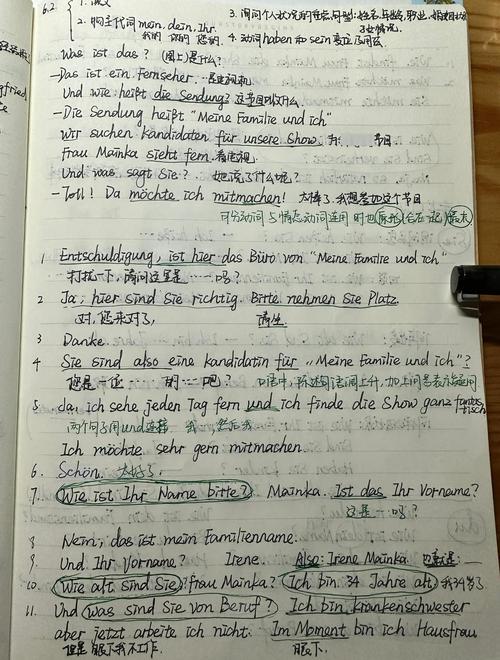 6.2 1. 课文
2. 物主代词 mein, dein, Ihr 3. 询问个人状况的
我的 你的 您的. 4. 动词haben和sein变位及用法
Was ist das? (图上)是什么?
— Das ist ein Fernseher. 是电视机
Und wie heißt die Sendung? 这节目叫什么.
— Die Sendung heißt "Meine Familie und ich"
Wir suchen kandidaten für unsere Show. 为... 节目
Frau Mainka sieht fern. 看电视.
Und was sagt Sie? 她说了什么呢?
— Toll! Da möchte ich mitmachen! 太棒了.我想参加这个节目
可分动词与情态动词连用时
1 Entschuldigung, ist hier das Büro von "Meine Familie und ich"
打扰一下,请问这里是······吗?
2 Ja, hier sind Sie richtig. Bitte nehmen Sie Platz.
对,您来对了, 请坐.
3 Danke.
4 Sie sind also eine kandidatin für „Meine Familie und ich"?
您是一位 ... 的...吧? 口语中,陈述句语调上升,加上问号表示疑问
5 da, ich sehe jeden Tag fern und ich finde die Show ganz fantastisch
两个句子用und连接 我,然后我
Ich möchte sehr gern mitmachen.
6. Schön. 太好了.
7. Wie ist Ihr Name bitte? Mainka. Ist das Ihr Vorname?
这是...吗?
8 Nein, das ist mein Familienname.
9. Und Ihr Vorname? Irene. Also: Irene Mainka. 也就是:
10. Wie alt sind Sie, frau Mainka? Ich bin 34 Jahre alt. 我34岁了
11. Und was sind Sie von Beruf? Ich bin krankenschwester
aber jetzt arbeite ich nicht. Im Moment bin ich Hausfrau
但是眼下我不工作. 眼下.